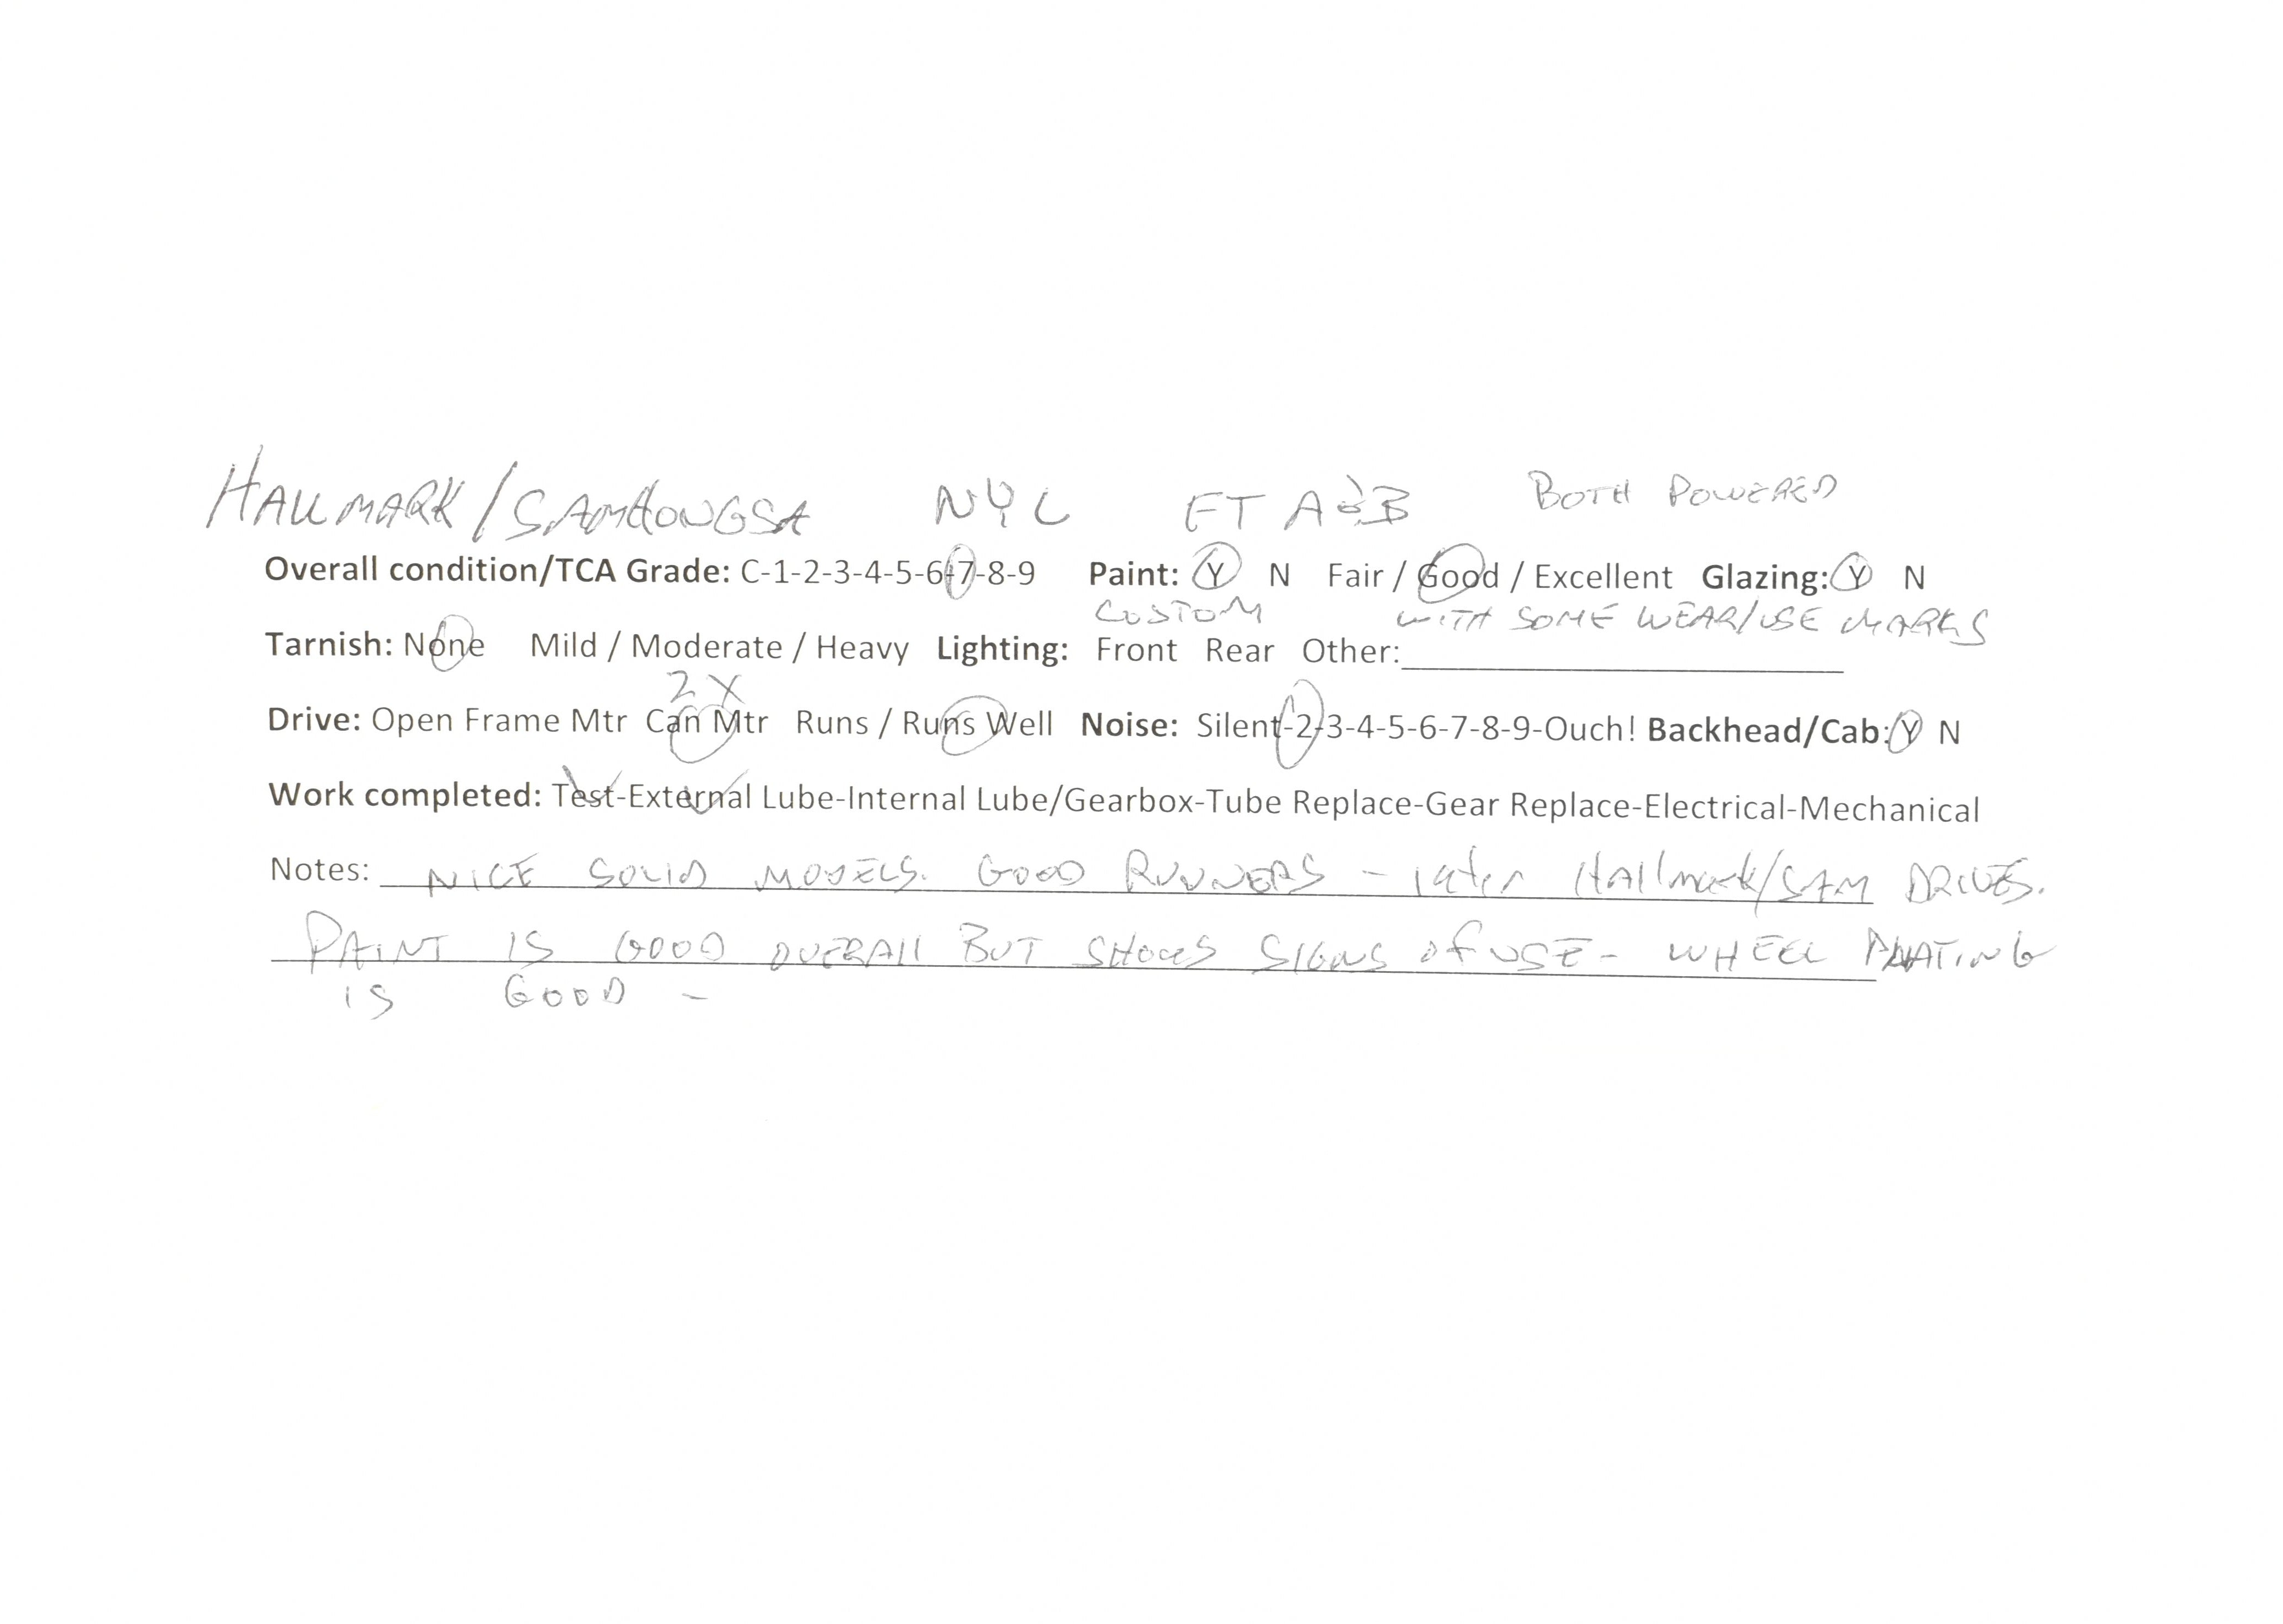 HALLMARK/SAMHONGSA NYC FT A&B BOTH POWERED
Overall condition/TCA Grade: C-1-2-3-4-5-6-7-8-9 Paint: Y N Fair / Good / Excellent Glazing: Y N
CUSTOM WITH SOME WEAR/USE MARKS
Tarnish: None Mild / Moderate / Heavy Lighting: Front Rear Other:
2X
Drive: Open Frame Mtr Can Mtr Runs / Runs Well Noise: Silent-2-3-4-5-6-7-8-9-Ouch! Backhead/Cab: Y N
Work completed: Test-External Lube-Internal Lube/Gearbox-Tube Replace-Gear Replace-Electrical-Mechanical
Notes: NICE SOLID MODELS. GOOD RUNNERS - later Hallmark/SAM DRIVES.
PAINT IS GOOD OVERALL BUT SHOWS SIGNS of USE - WHEEL PLATING
IS GOOD -